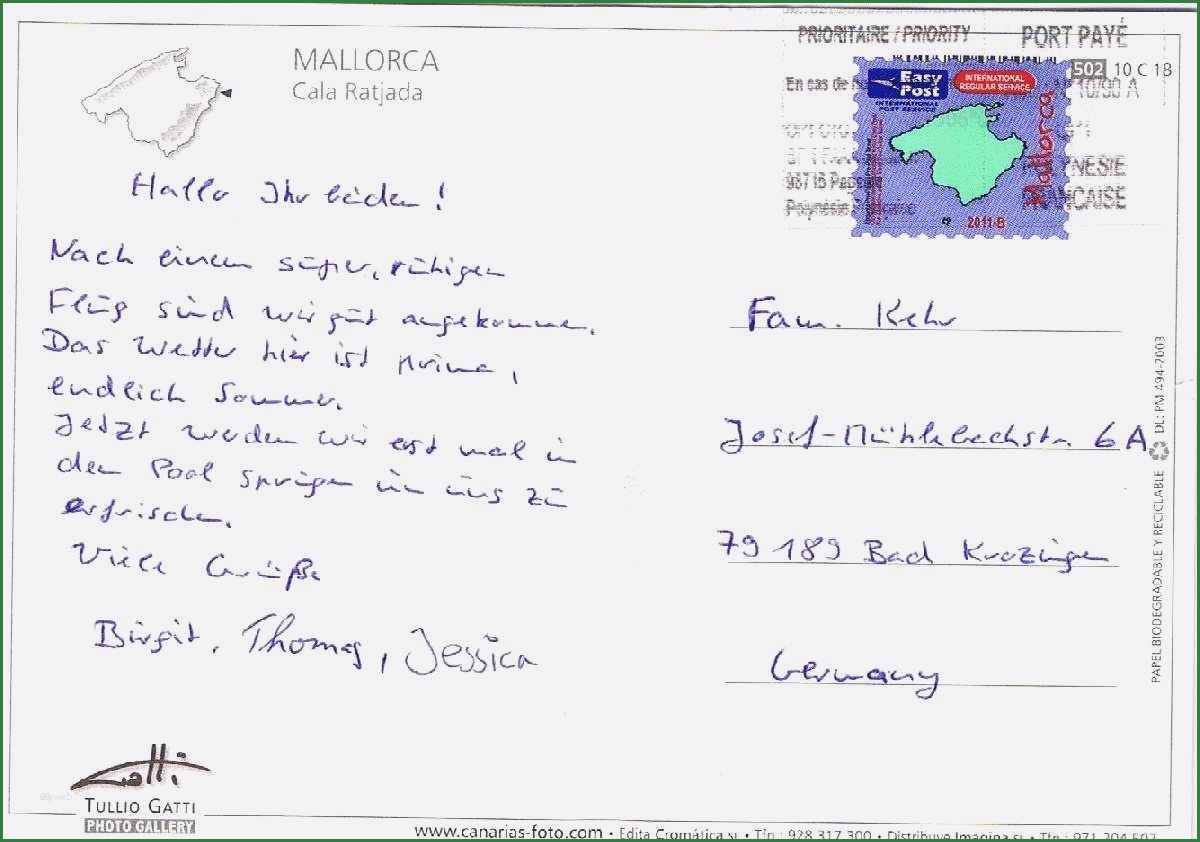 MALLORCA
Cala Ratjada
PRIORITAIRE / PRIORITY
PORT PAYÉ
502 10 C 18
En cas de
Easy Post
INTERNATIONAL POST SERVICE
INTERNATIONAL REGULAR SERVICE
Mallorca
2011-B
POLYNESIE
FRANCAISE
Hallo Ihr beiden!
Nach einem super, ruhigen
Flug sind wir gut angekommen.
Das Wetter hier ist prima,
endlich Sommer.
Jetzt werden wir erst mal in
den Pool springen um uns zu
erfrischen.
Viele Grüße
Birgit, Thomas, Jessica
Fam. Kehr
Josef-Mühlebachstr. 6A
79189 Bad Krozingen
Germany
PAPEL BIODEGRADABLE Y RECICLABLE
DL: PM 494-2003
Gatti
TULLIO GATTI
PHOTO GALLERY
www.canarias-foto.com • Edita Cromática sl • Tfn.: 928 317 300 • Distribuye Imagina sl • Tfn.: 971 204 507